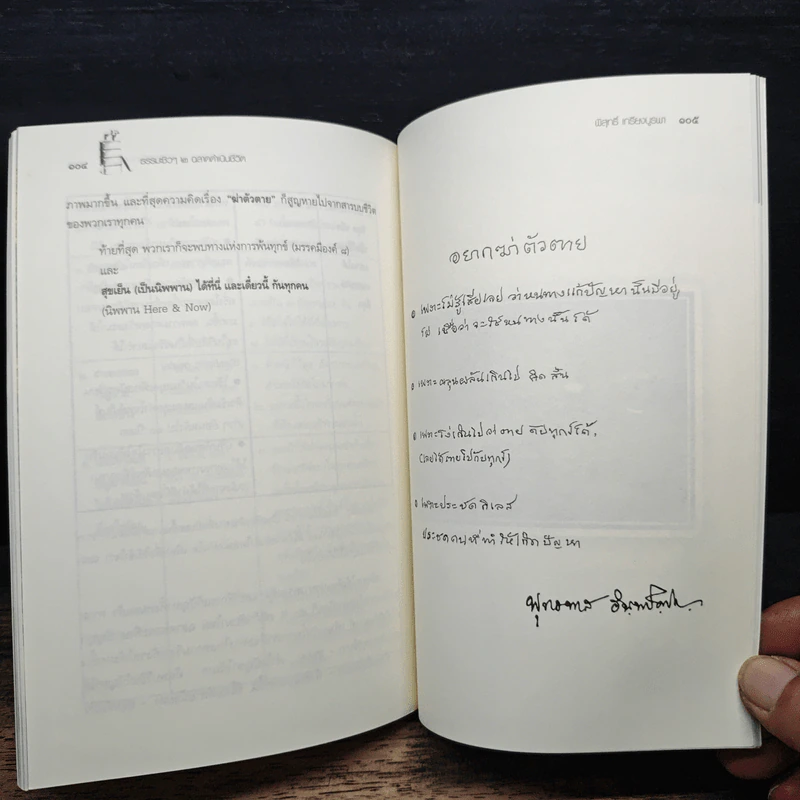 ๑๐๔ ธรรมะชิวๆ ๒ ฉลาดดำเนินชีวิต
ภาพมากขึ้น และที่สุดความคิดเรื่อง "ฆ่าตัวตาย" ก็สูญหายไปจากสารบบชีวิต
ของพวกเราทุกคน
ท้ายที่สุด พวกเราก็จะพบทางแห่งการพ้นทุกข์ (มรรคมีองค์ ๘)
และ
สุขเย็น (เป็นนิพพาน) ได้ที่นี่ และเดี๋ยวนี้ กันทุกคน
(นิพพาน Here & Now)
พิสุทธิ์ เกรียงบูรพา ๑๐๕
อยากฆ่าตัวตาย
เพราะไม่รู้เสียเลย ว่าหนทางแก้ปัญหานั้นมีอยู่
ไม่เชื่อว่าจะใช้หนทางนั้นได้
เพราะผลุนผลันเกินไป คิดสั้น
เพราะโง่เกินไป ว่าตายดับทุกข์ได้,
(เลยได้ตายไปกับทุกข์)
เพราะประชดกิเลส
ประชดคนที่ทำให้เกิดปัญหา
พุทธทาส อินฺทปญฺโญ